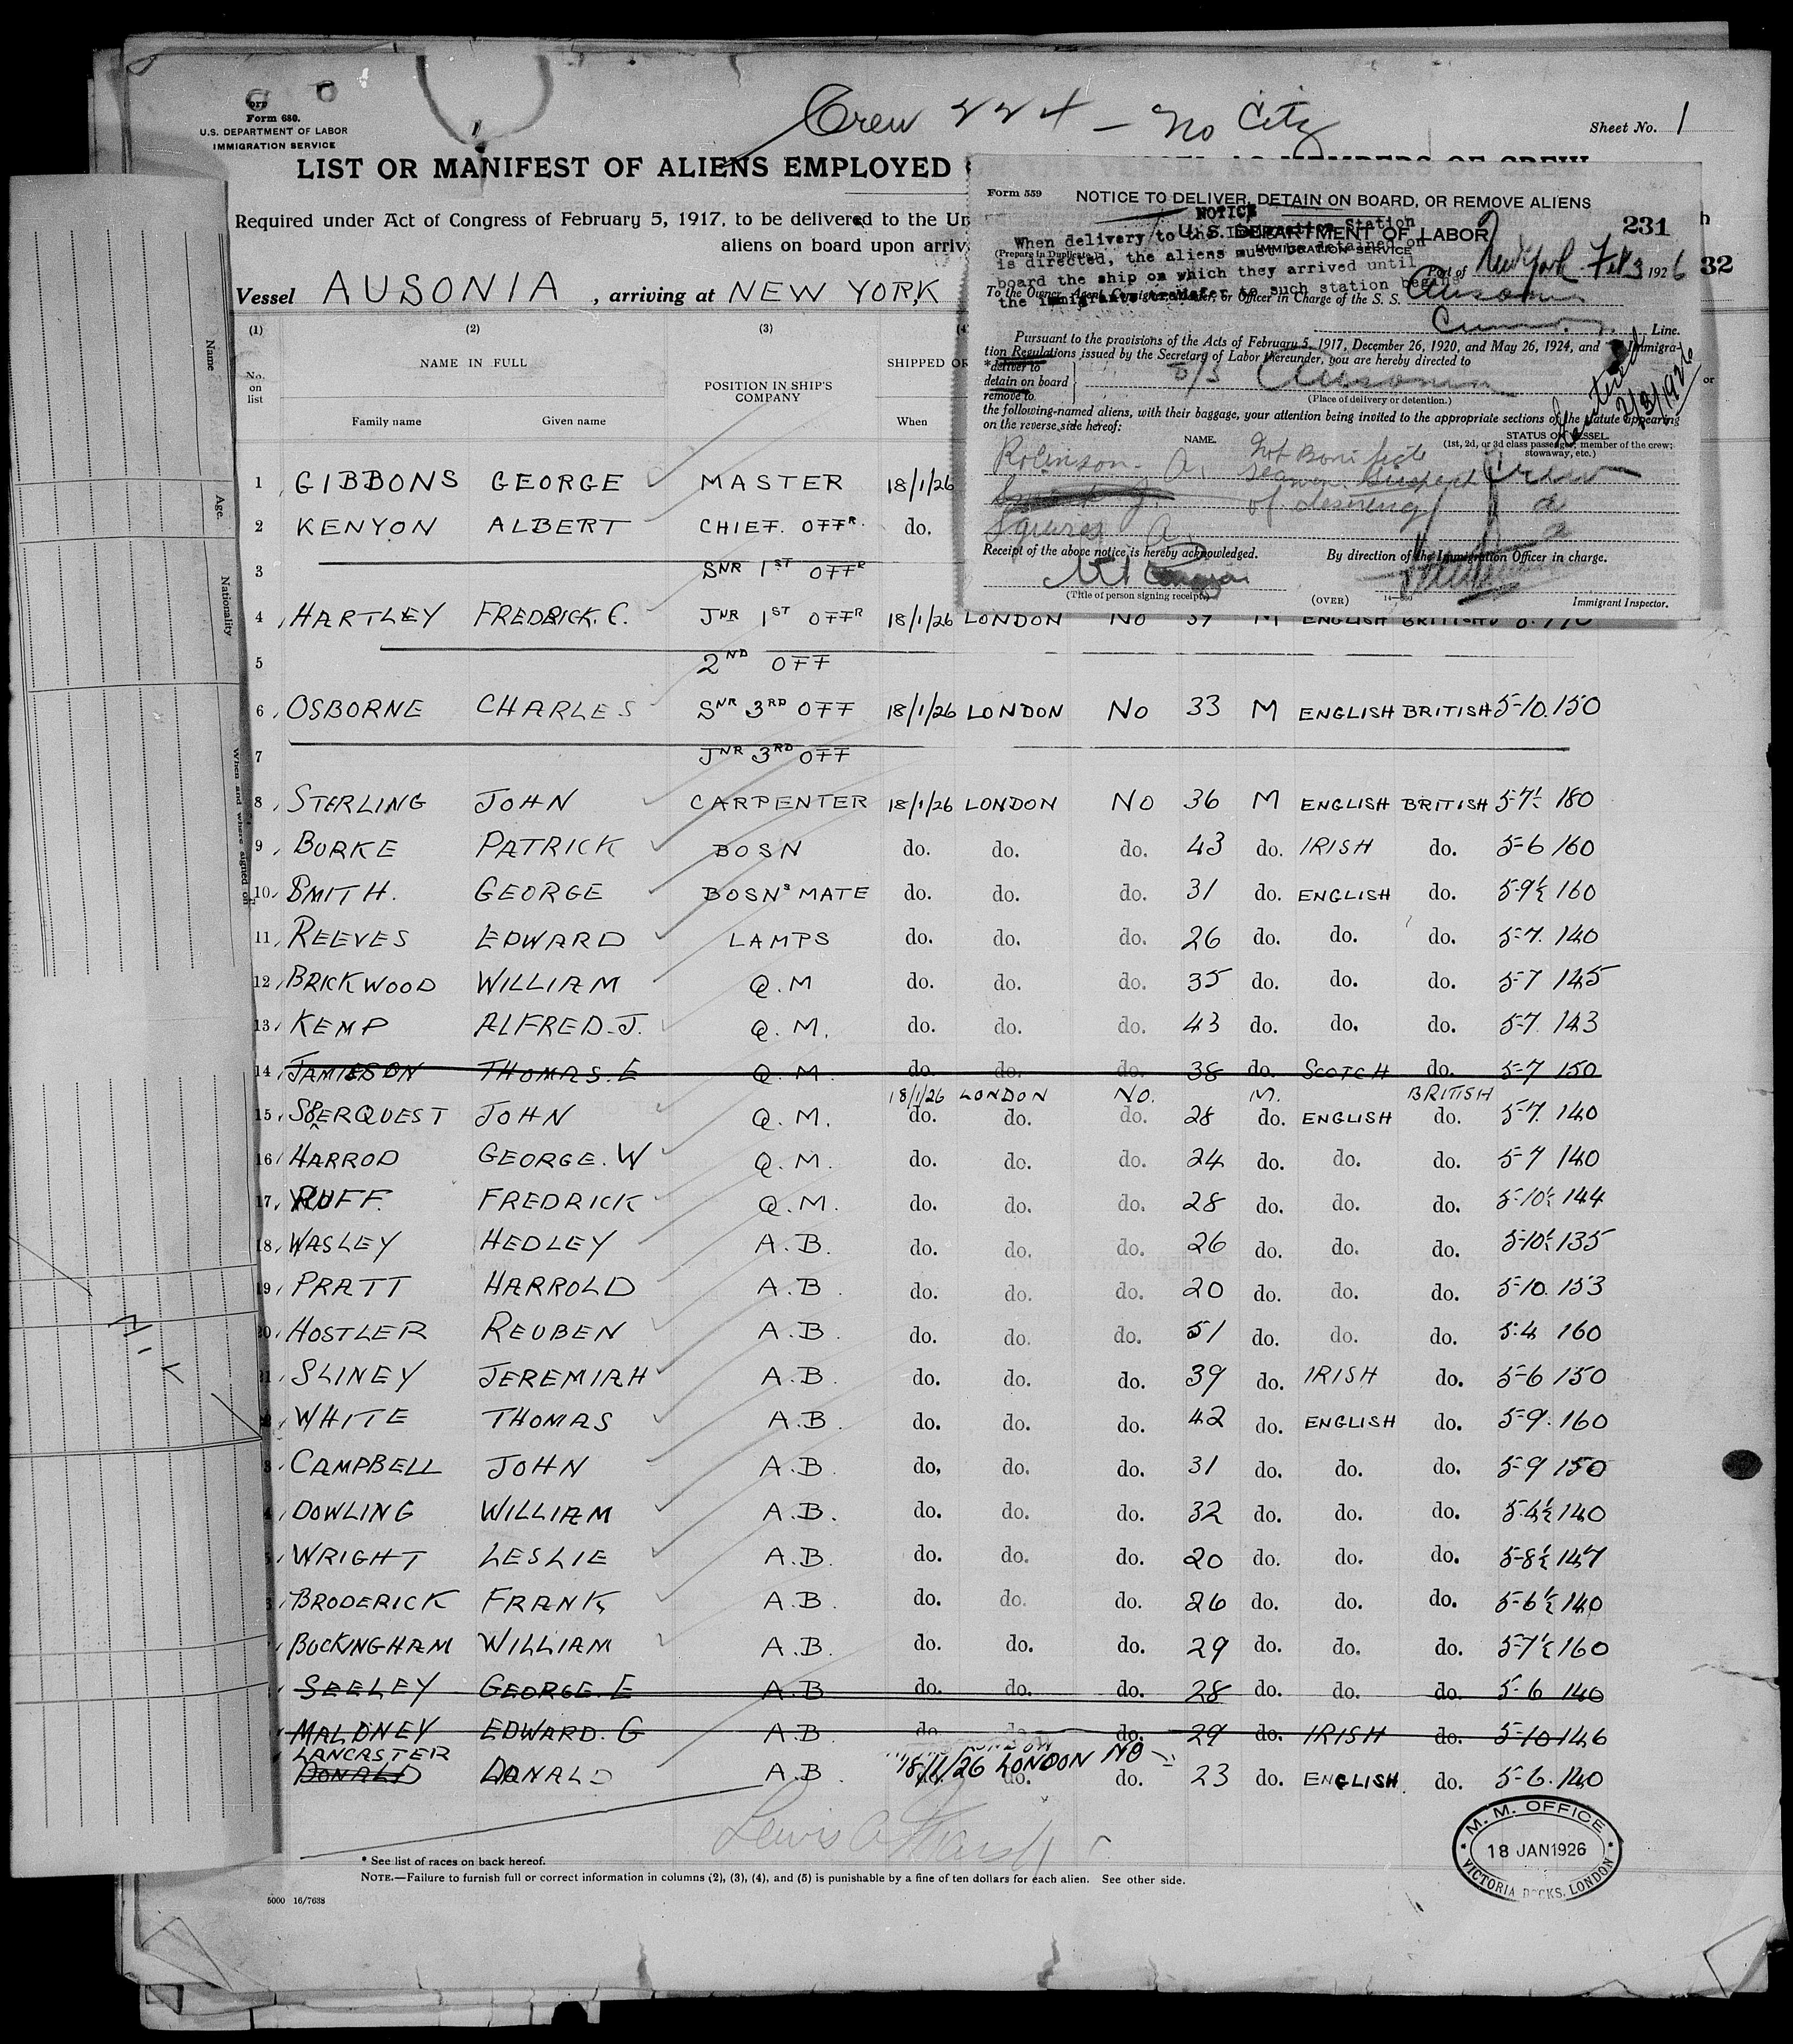 Crew 224 - No City
Form 680.
U.S. DEPARTMENT OF LABOR
IMMIGRATION SERVICE
Sheet No. 1
LIST OR MANIFEST OF ALIENS EMPLOYED
Required under Act of Congress of February 5, 1917, to be delivered to the
aliens on board upon
Vessel AUSONIA, arriving at NEW YORK
Form 559
NOTICE TO DELIVER, DETAIN ON BOARD, OR REMOVE ALIENS
NOTICE
231
U. S. DEPARTMENT OF LABOR
IMMIGRATION SERVICE
When delivery to the Immigration Station
is directed, the aliens must be detained on
board the ship on which they arrived until
the immigrants transfer to such station begins
(Prepare in Duplicate.)
Port of New York Feb 3 1926
32
To the Owner, Agent, Consignee, Master, or Officer in Charge of the S. S. Ausonia
Cunard Line.
Pursuant to the provisions of the Acts of February 5, 1917, December 26, 1920, and May 26, 1924, and Immigra-
tion Regulations issued by the Secretary of Labor thereunder, you are hereby directed to
*deliver to
detain on board
remove to
S/S Ausonia
(Place of delivery or detention.)
the following-named aliens, with their baggage, your attention being invited to the appropriate sections of the statute appearing
on the reverse side hereof:
2/3/1926
NAME.
STATUS ON VESSEL.
(1st, 2d, or 3d class passenger; member of the crew;
stowaway, etc.)
Robinson A. Not Bona fide
seamen Suspect Crew
of deserting
Squires A.
Receipt of the above notice is hereby acknowledged.
By direction of the Immigration Officer in charge.
(Title of person signing receipt.)
(OVER)
Immigrant Inspector.
Name
Age.
Nationality
When and where signed on
(1) (2) (3)
No. on list
NAME IN FULL
Family name Given name
POSITION IN SHIP'S COMPANY
SHIPPED OR
When
1 GIBBONS GEORGE MASTER 18/1/26
2 KENYON ALBERT CHIEF. OFFR. do.
3 SNR 1ST OFFR
4 HARTLEY FREDRICK. C. JNR 1ST OFFR 18/1/26 LONDON NO 39 M ENGLISH BRITISH
5 2ND OFF
6 OSBORNE CHARLES SNR 3RD OFF 18/1/26 LONDON NO 33 M ENGLISH BRITISH 5-10. 150
7 JNR 3RD OFF
8 STERLING JOHN CARPENTER 18/1/26 LONDON NO 36 M ENGLISH BRITISH 5-7½ 180
9 BURKE PATRICK BOSN do. do. do. 43 do. IRISH do. 5-6 160
10 SMITH. GEORGE BOSNS MATE do. do. do. 31 do. ENGLISH do. 5-9½ 160
11 REEVES EDWARD LAMPS do. do. do. 26 do. do. do. 5-7. 140
12 BRICKWOOD WILLIAM Q.M do. do. do. 35 do. do. do. 5-7 145
13 KEMP ALFRED. J. Q.M. do. do. do. 43 do. do. do. 5-7. 143
14 JAMIESON THOMAS. E Q.M. do. do. do. 38 do. SCOTCH do. 5-7 150
18/1/26 LONDON NO. M. BRITISH
15 SPERQUEST JOHN Q.M. do. do. do. 28 do. ENGLISH do. 5-7. 140
16 HARROD GEORGE. W Q.M. do. do. do. 24 do. do. do. 5-7 140
17 RUFF. FREDRICK Q.M. do. do. do. 28 do. do. do. 5-10½ 144
18 WASLEY HEDLEY A.B. do. do. do. 26 do. do. do. 5-10½ 135
19 PRATT HARROLD A.B. do. do. do. 20 do. do. do. 5-10. 153
20 HOSTLER REUBEN A.B. do. do. do. 51 do. do. do. 5.4 160
21 SLINEY JEREMIAH A.B. do. do. do. 39 do. IRISH do. 5-6 150
WHITE THOMAS A.B. do. do. do. 42 do. ENGLISH do. 5-9. 160
3 CAMPBELL JOHN A.B. do. do. do. 31 do. do. do. 5-9 150
DOWLING WILLIAM A.B. do. do. do. 32 do. do. do. 5.4½ 140
WRIGHT LESLIE A.B. do. do. do. 20 do. do. do. 5-8½ 147
BRODERICK FRANK A.B. do. do. do. 26 do. do. do. 5-6½ 140
BUCKINGHAM WILLIAM A.B. do. do. do. 29 do. do. do. 5-7½ 160
SEELEY GEORGE. E A.B do. do. do. 28 do. do. do. 5-6 140
MALONEY EDWARD. G A.B. do. do. do. 29 do. IRISH do. 5-10 146
LANCASTER 18/1/26 LONDON NO
DONALD DONALD A.B. do. do. do. 23 do. ENGLISH. do. 5-6. 140
* See list of races on back hereof.
NOTE.—Failure to furnish full or correct information in columns (2), (3), (4), and (5) is punishable by a fine of ten dollars for each alien. See other side.
5000 16/7638
M. M. OFFICE
18 JAN 1926
VICTORIA DOCKS, LONDON